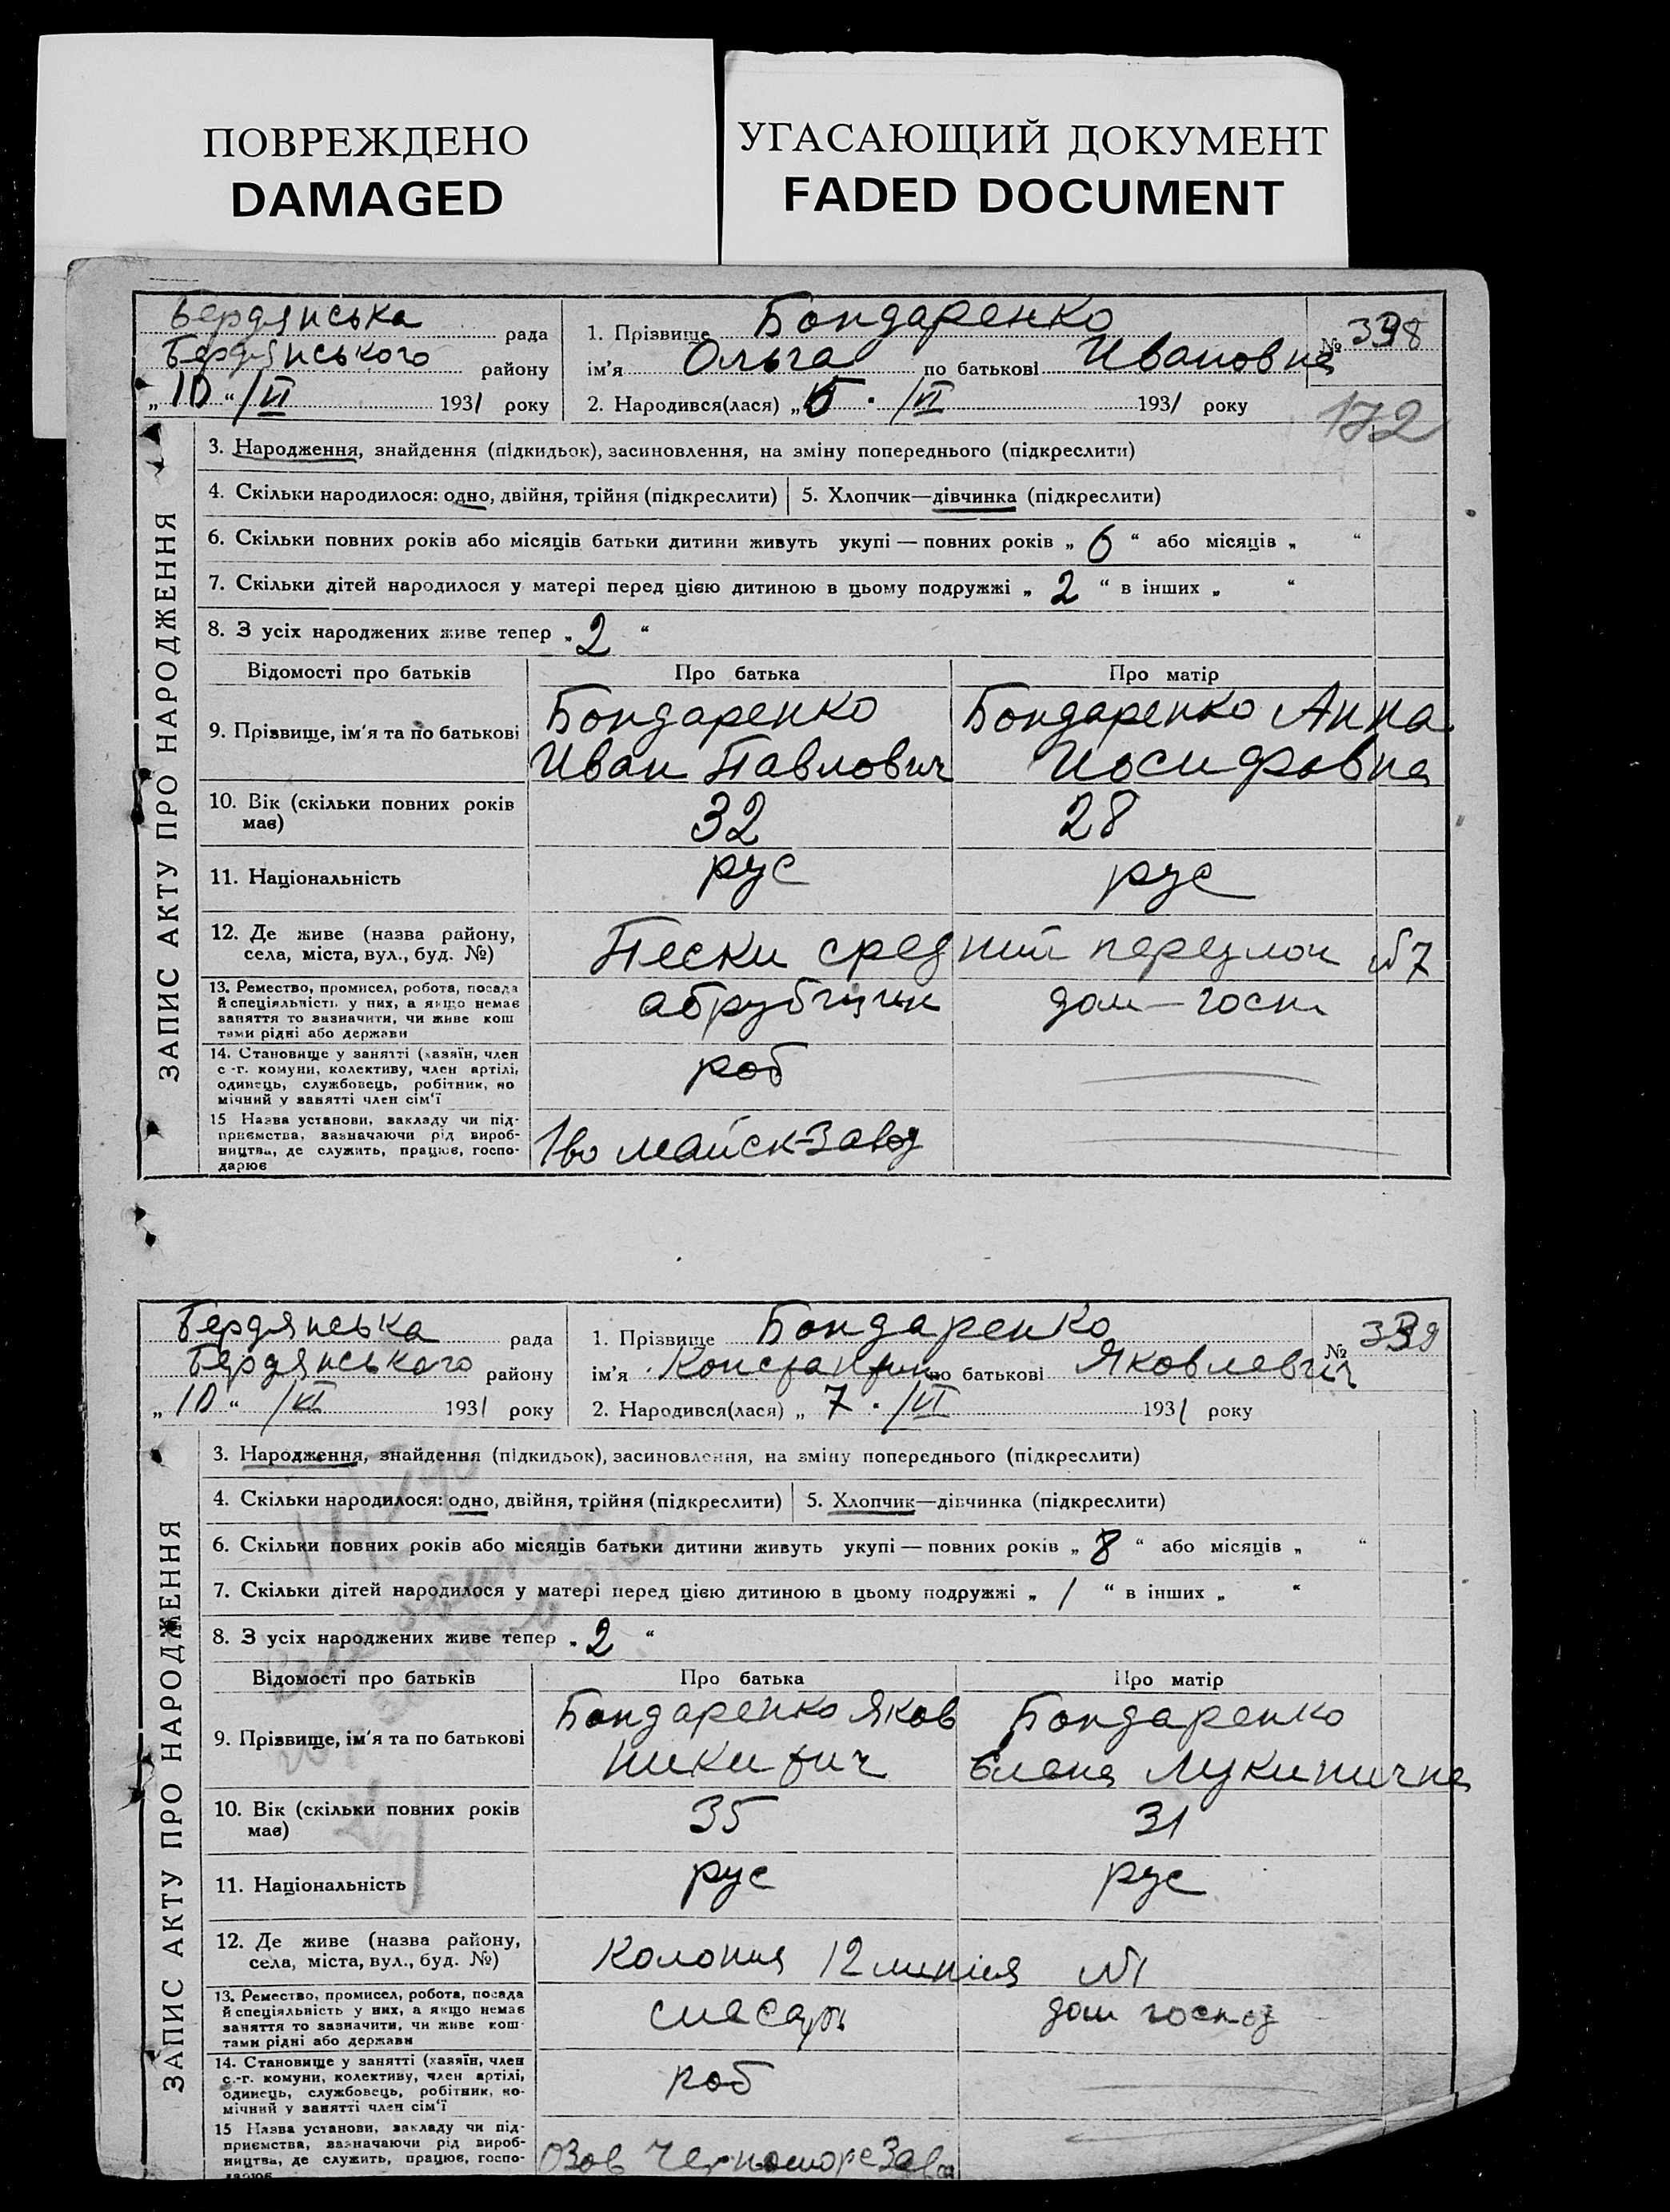 ПОВРЕЖДЕНО
DAMAGED
УГАСАЮЩИЙ ДОКУМЕНТ
FADED DOCUMENT
ЗАПИС АКТУ ПРО НАРОДЖЕННЯ
Бердянська рада
Бердянського району
„ 10 “ /VI 1931 року
1. Прізвище Бондаренко
ім'я Ольга по батькові Ивановна
2. Народився(лася) „ 5 . /VI 1931 року
№ 338
172
3. Народження, знайдення (підкидьок), засиновлення, на зміну попереднього (підкреслити)
4. Скільки народилося: одно, двійня, трійня (підкреслити) 5. Хлопчик—дівчинка (підкреслити)
6. Скільки повних років або місяців батьки дитини живуть укупі — повних років „ 6 “ або місяців „ “
7. Скільки дітей народилося у матері перед цією дитиною в цьому подружжі „ 2 “ в інших „ “
8. З усіх народжених живе тепер „ 2 “
Відомості про батьків Про батька Про матір
9. Прізвище, ім'я та по батькові
Бондаренко
Иван Павлович
Бондаренко Анна
Иосифовна
10. Вік (скільки повних років
має)
32 28
11. Національність рус рус
12. Де живе (назва району,
села, міста, вул., буд. №)
Пески средний №7
13. Ремество, промисел, робота, посада
й спеціяльність у них, а якщо немає
заняття то зазначити, чи живе кош
тами рідні або держави
обрубщик дом-госп
14. Становище у занятті (хазяїн, член
с.-г. комуни, колективу, член артілі,
одинець, службовець, робітник, по
мічний у занятті член сім'ї
роб
15 Назва установи, закладу чи під-
приємства, зазначаючи рід вироб-
ництва, де служить, працює, госпо-
дарює
1во майск-Завод
ЗАПИС АКТУ ПРО НАРОДЖЕННЯ
Бердянська рада
Бердянського району
„ 10 “ /VI 1931 року
1. Прізвище Бондаренко
ім'я Константин по батькові Яковлевич
2. Народився(лася) „ 7 . /VI 1931 року
№ 339
3. Народження, знайдення (підкидьок), засиновлення, на зміну попереднього (підкреслити)
4. Скільки народилося: одно, двійня, трійня (підкреслити) 5. Хлопчик—дівчинка (підкреслити)
6. Скільки повних років або місяців батьки дитини живуть укупі — повних років „ 8 “ або місяців „ “
7. Скільки дітей народилося у матері перед цією дитиною в цьому подружжі „ 1 “ в інших „ “
8. З усіх народжених живе тепер „ 2 “
Відомості про батьків Про батька Про матір
9. Прізвище, ім'я та по батькові
Бондаренко Яков
Никитич
Бондаренко
Елена Лукинична
10. Вік (скільки повних років
має)
35 31
11. Національність рус рус
12. Де живе (назва району,
села, міста, вул., буд. №)
Колония 12 линия №1
13. Ремество, промисел, робота, посада
й спеціяльність у них, а якщо немає
заняття то зазначити, чи живе кош-
тами рідні або держави
слесарь дом господ
14. Становище у занятті (хазяїн, член
с.-г. комуни, колективу, член артілі,
одинець, службовець, робітник, по-
мічний у занятті член сім'ї
роб
15 Назва установи, закладу чи під-
приємства, зазначаючи рід вироб-
ництва, де служить, працює, госпо-
дарює